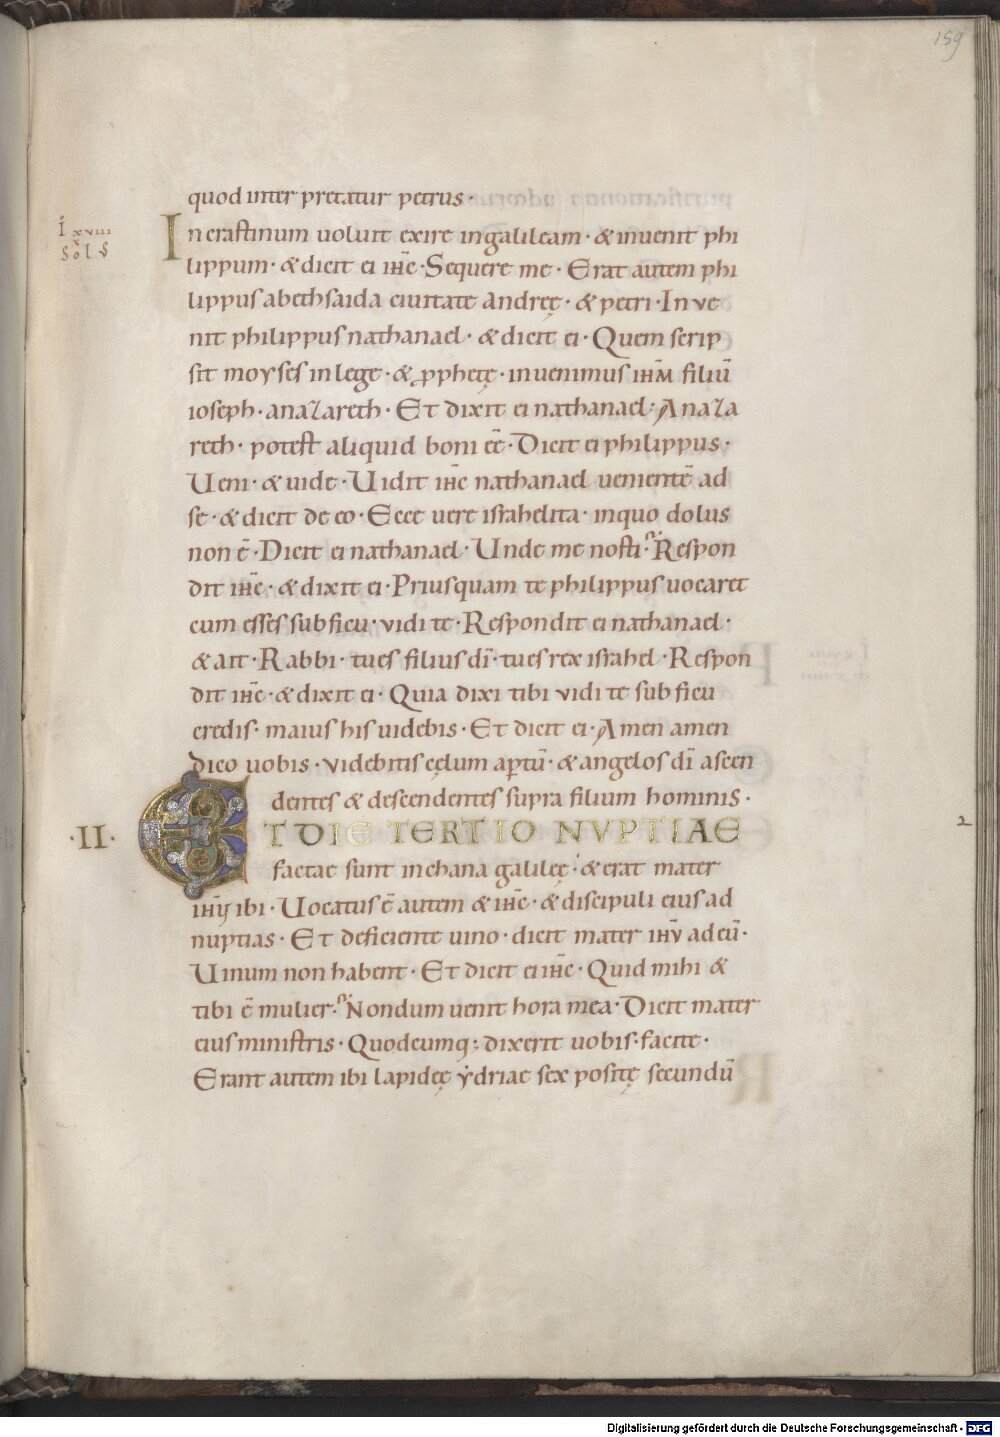 159
quod inter pretatur petrus·
In crastinum uoluit exire ingalileam· & inuenit phi
lippum· & dicit ei ihc̄·Sequere me· Erat autem phi
lippus abethsaida ciuitate andreę· & petri·Inve
nit philippus nathanael· & dicit ei· Quem scrip
sit moyses in lege· & ꝓphetę· inuenimus ihm̄ filiū
ioseph· anazareth· Et dixit ei nathanael· Anaza
reth· potest aliquid boni eē· Dicit ei philippus·
Ueni· & uide· Uidit ihc̄ nathanael uenientē ad
se· & dicit de eo· Ecce uere israhelita· inquo dolus
non ē· Dicit ei nathanael· Unde me nosti· Respon
dit ihc̄· & dixit ei· Priusquam te philippus uocaret
cum esses sub ficu· vidi te· Respondit ei nathanael·
& ait· Rabbi· tu es filius dī· tu es rex israhel· Respon
dit ihc̄· & dixit ei· Quia dixi tibi vidi te sub ficu
credis· maius his uidebis· Et dicit ei· Amen amen
dico uobis· videbitis cęlum apertū· & angelos dī ascen
dentes & descendentes supra filium hominis·
·II· ET DIE TERTIO NVPTIAE
factae sunt inchana galileę· & erat mater
ihū ibi· Uocatus ē autem & ihc̄· & discipuli eius ad
nuptias· Et deficiente uino· dicit mater ihū ad eū·
Uinum non habent· Et dicit ei ihc̄· Quid mihi &
tibi ē mulier· Nondum uenit hora mea· Dicit mater
eius ministris· Quodcumq; dixerit uobis· facite·
Erant autem ibi lapidęę ydriae sex positę secundū
2
Digitalisierung gefördert durch die Deutsche Forschungsgemeinschaft - DFG